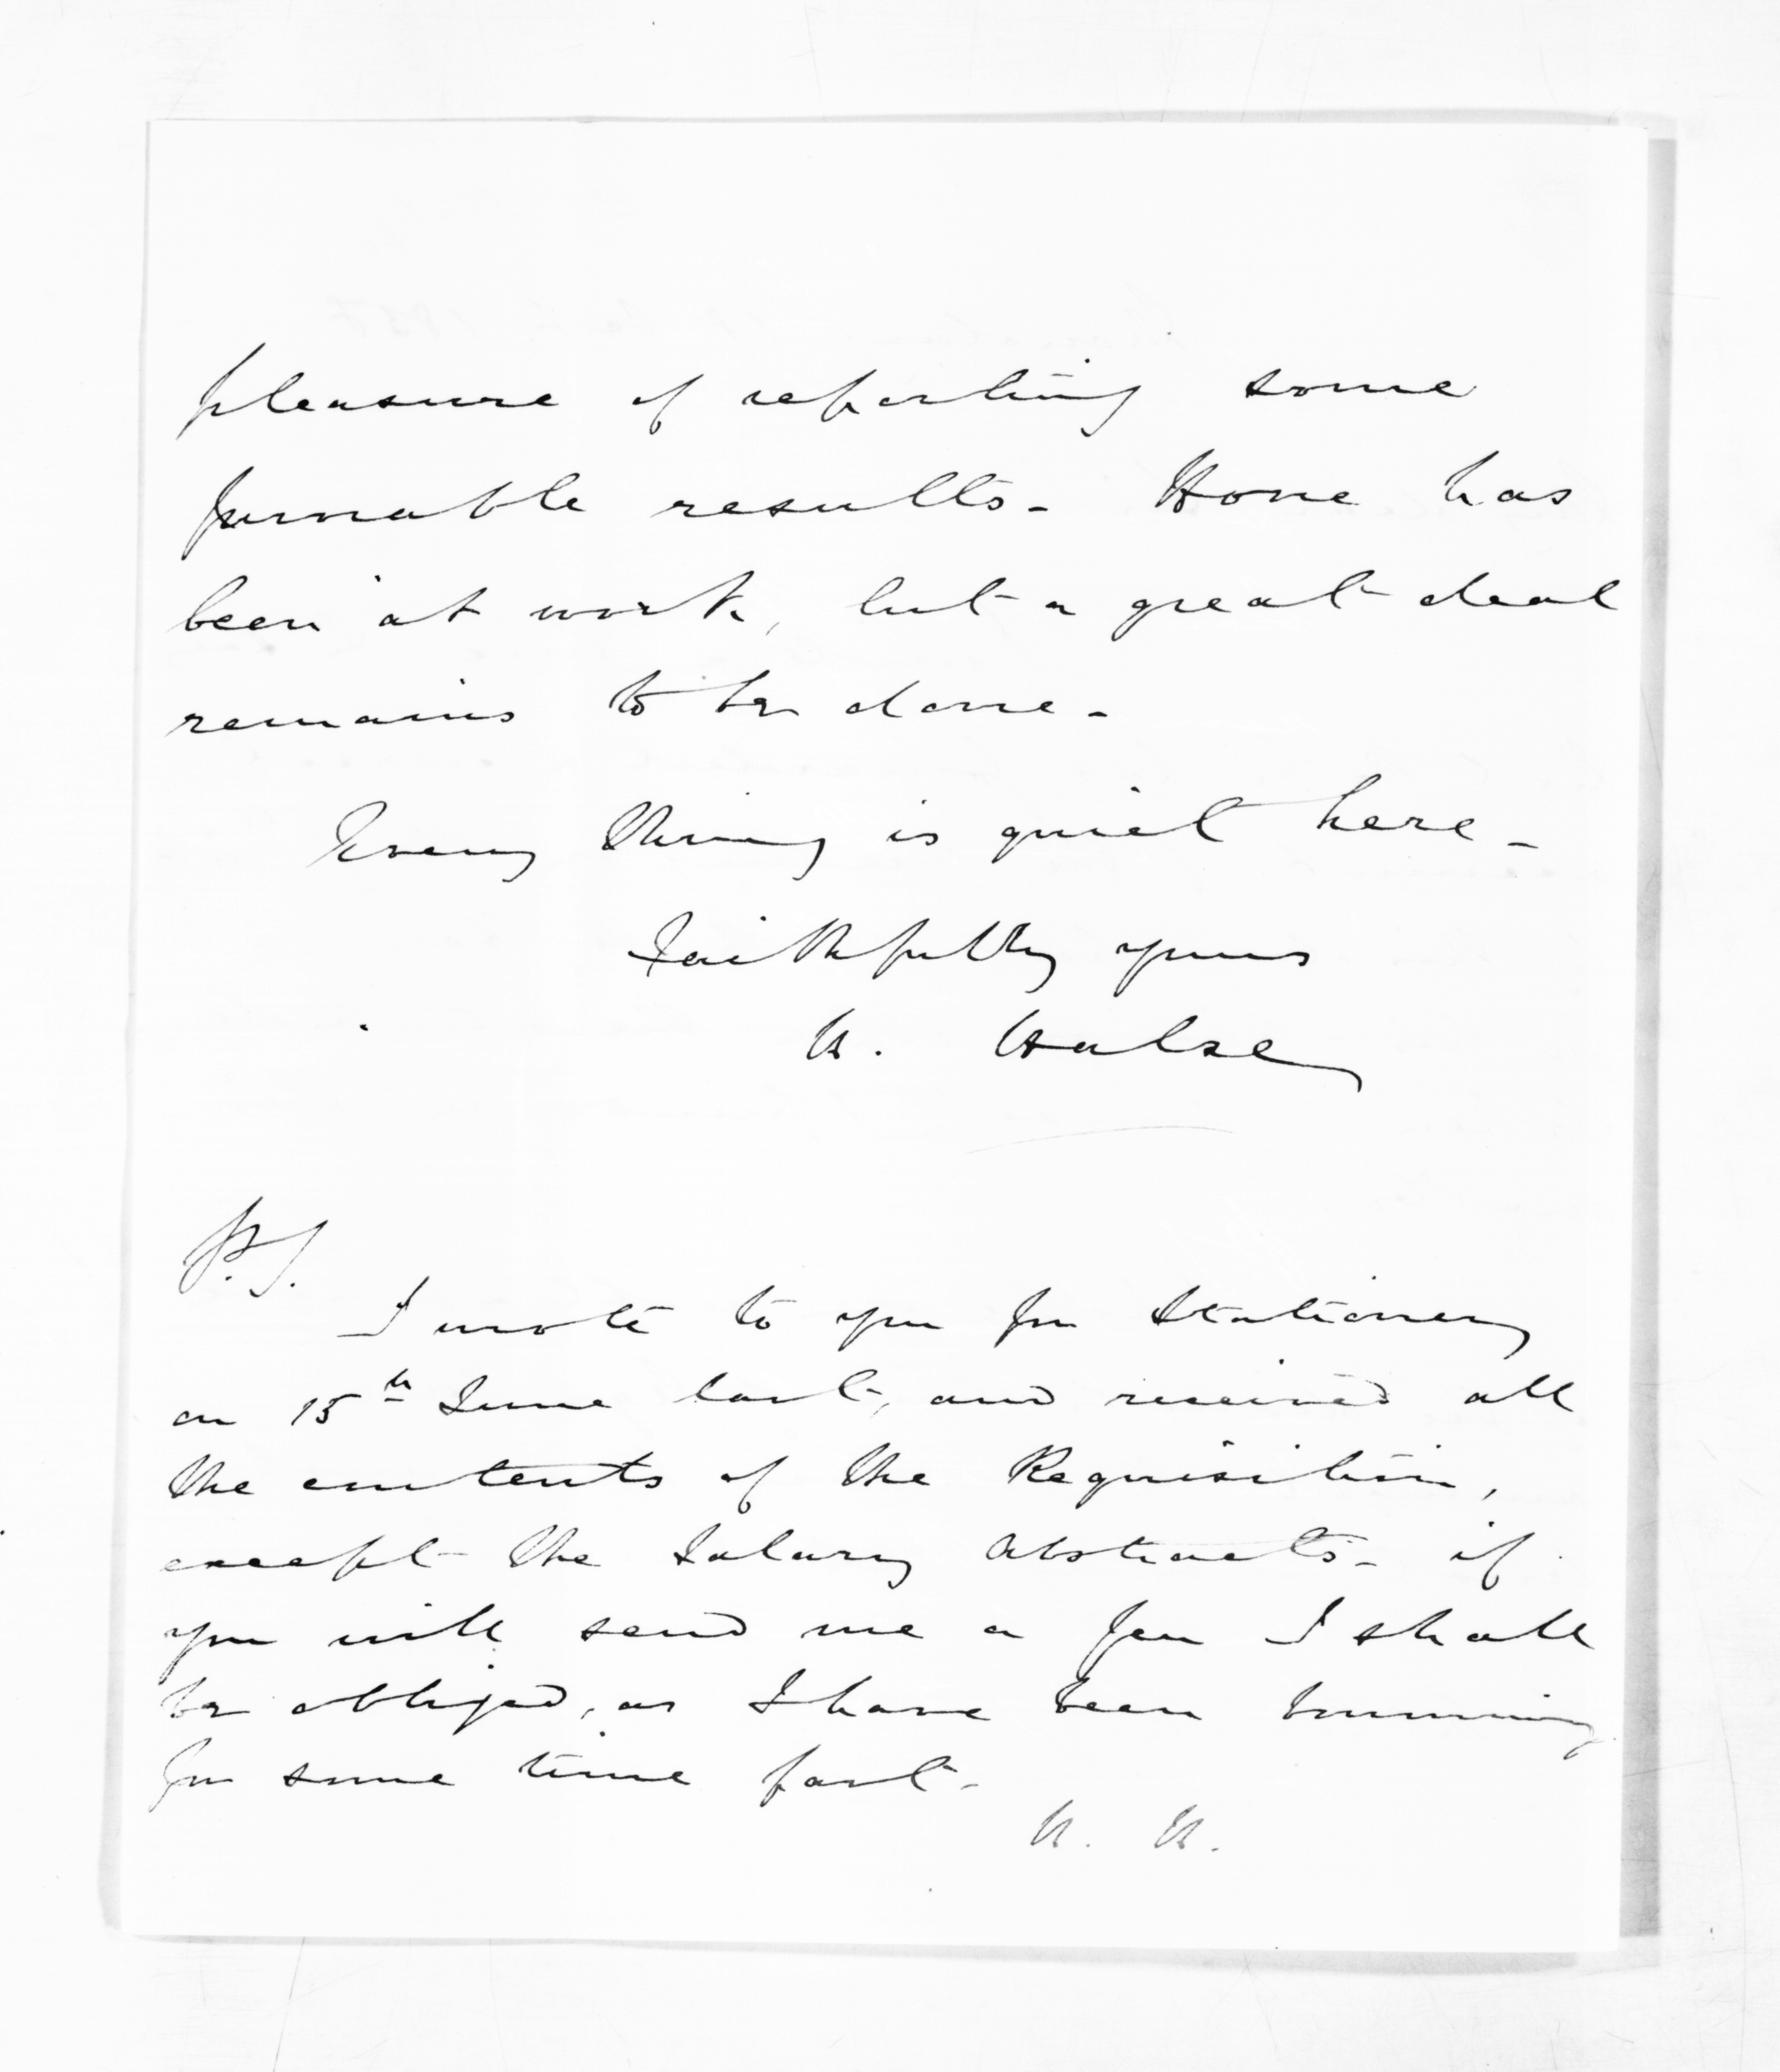 pleasure of reporting some
favourable results - Hone has
been at work, but a great deal
remains to be done -
Every thing is quiet here -
Faithfully yours
H. Halse
P.S.
I wrote to you for Stationery
on 15th June last, and received all
the contents of the Requisition,
except the Salary Abstracts - if
you will send me a few I shall
be obliged, as I have been borrowing
for some time past -
H. H.